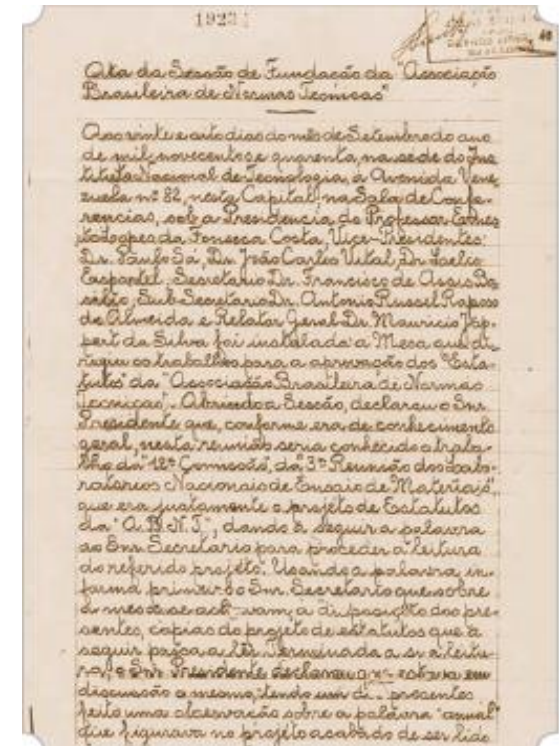 1923
40
Ata da Sessão de Fundação da "Associação
Brasileira de Normas Tecnicas"
Aos vinte e oito dias do mês de Setembro do ano
de mil novecentos e quarenta, na sede do Ins
tituto Nacional de Tecnologia, à Avenida Vene
zuela nº 82, nesta Capital, na Sala de Confe-
rencias, sob a Presidencia do Professor Ernes
to Lopes da Fonseca Costa, Vice-Presidentes:
Dr. Paulo Sá, Dr. João Carlos Vital, Dr.
Secretario Dr. Francisco de Assis Ba
silio, Sub-Secretario Dr. Antonio Russel Raposo
de Almeida e Relator Geral Dr. Mauricio Jop-
pert da Silva foi instalada a Mesa que di
rigiu os trabalhos para a aprovação dos "Esta-
tutos" da "Associação Brasileira de Normas
Tecnicas". Abrindo a Sessão, declarou o Snr.
Presidente que, conforme era de conhecimento
geral, nesta reunião seria conhecido o traba-
lho da "12ª Comissão, da 3ª Reunião dos Labo-
ratorios Nacionais de Ensaio de Materiais",
que era justamente o projéto de Estatutos
da "A.B.N.T.", dando a seguir a palavra
ao Snr. Secretario para proceder a leitura
do referido projéto. Usando a palavra, in-
forma primeiro o Snr. Secretario que sobre
a mesa se ach vam, a disposição dos pre-
sentes, copias do projeto de estatutos que a
seguir passa a lêr. Terminada a leitu-
ra, o Snr. Presidente declarou que estava em
discussão o mesmo, tendo um presentes
feito uma observação sobre a palavra "anual"
que figurava no projéto acabado de ser lido